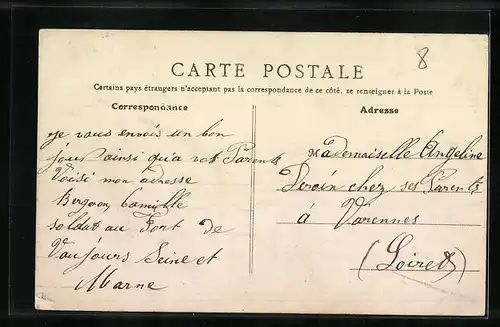 8
CARTE POSTALE
Certains pays étrangers n'acceptant pas la correspondance de ce côté, se renseigner à la Poste
Correspondance
Je vous envois un bon
jour ainsi qu'a vos Parents
Voisi mon adresse
Camille
soldat au Fort de
Vaujours Seine et
Marne
Adresse
Mademaiselle Angeline
chez ses Parents
à Varennes
(Loiret)